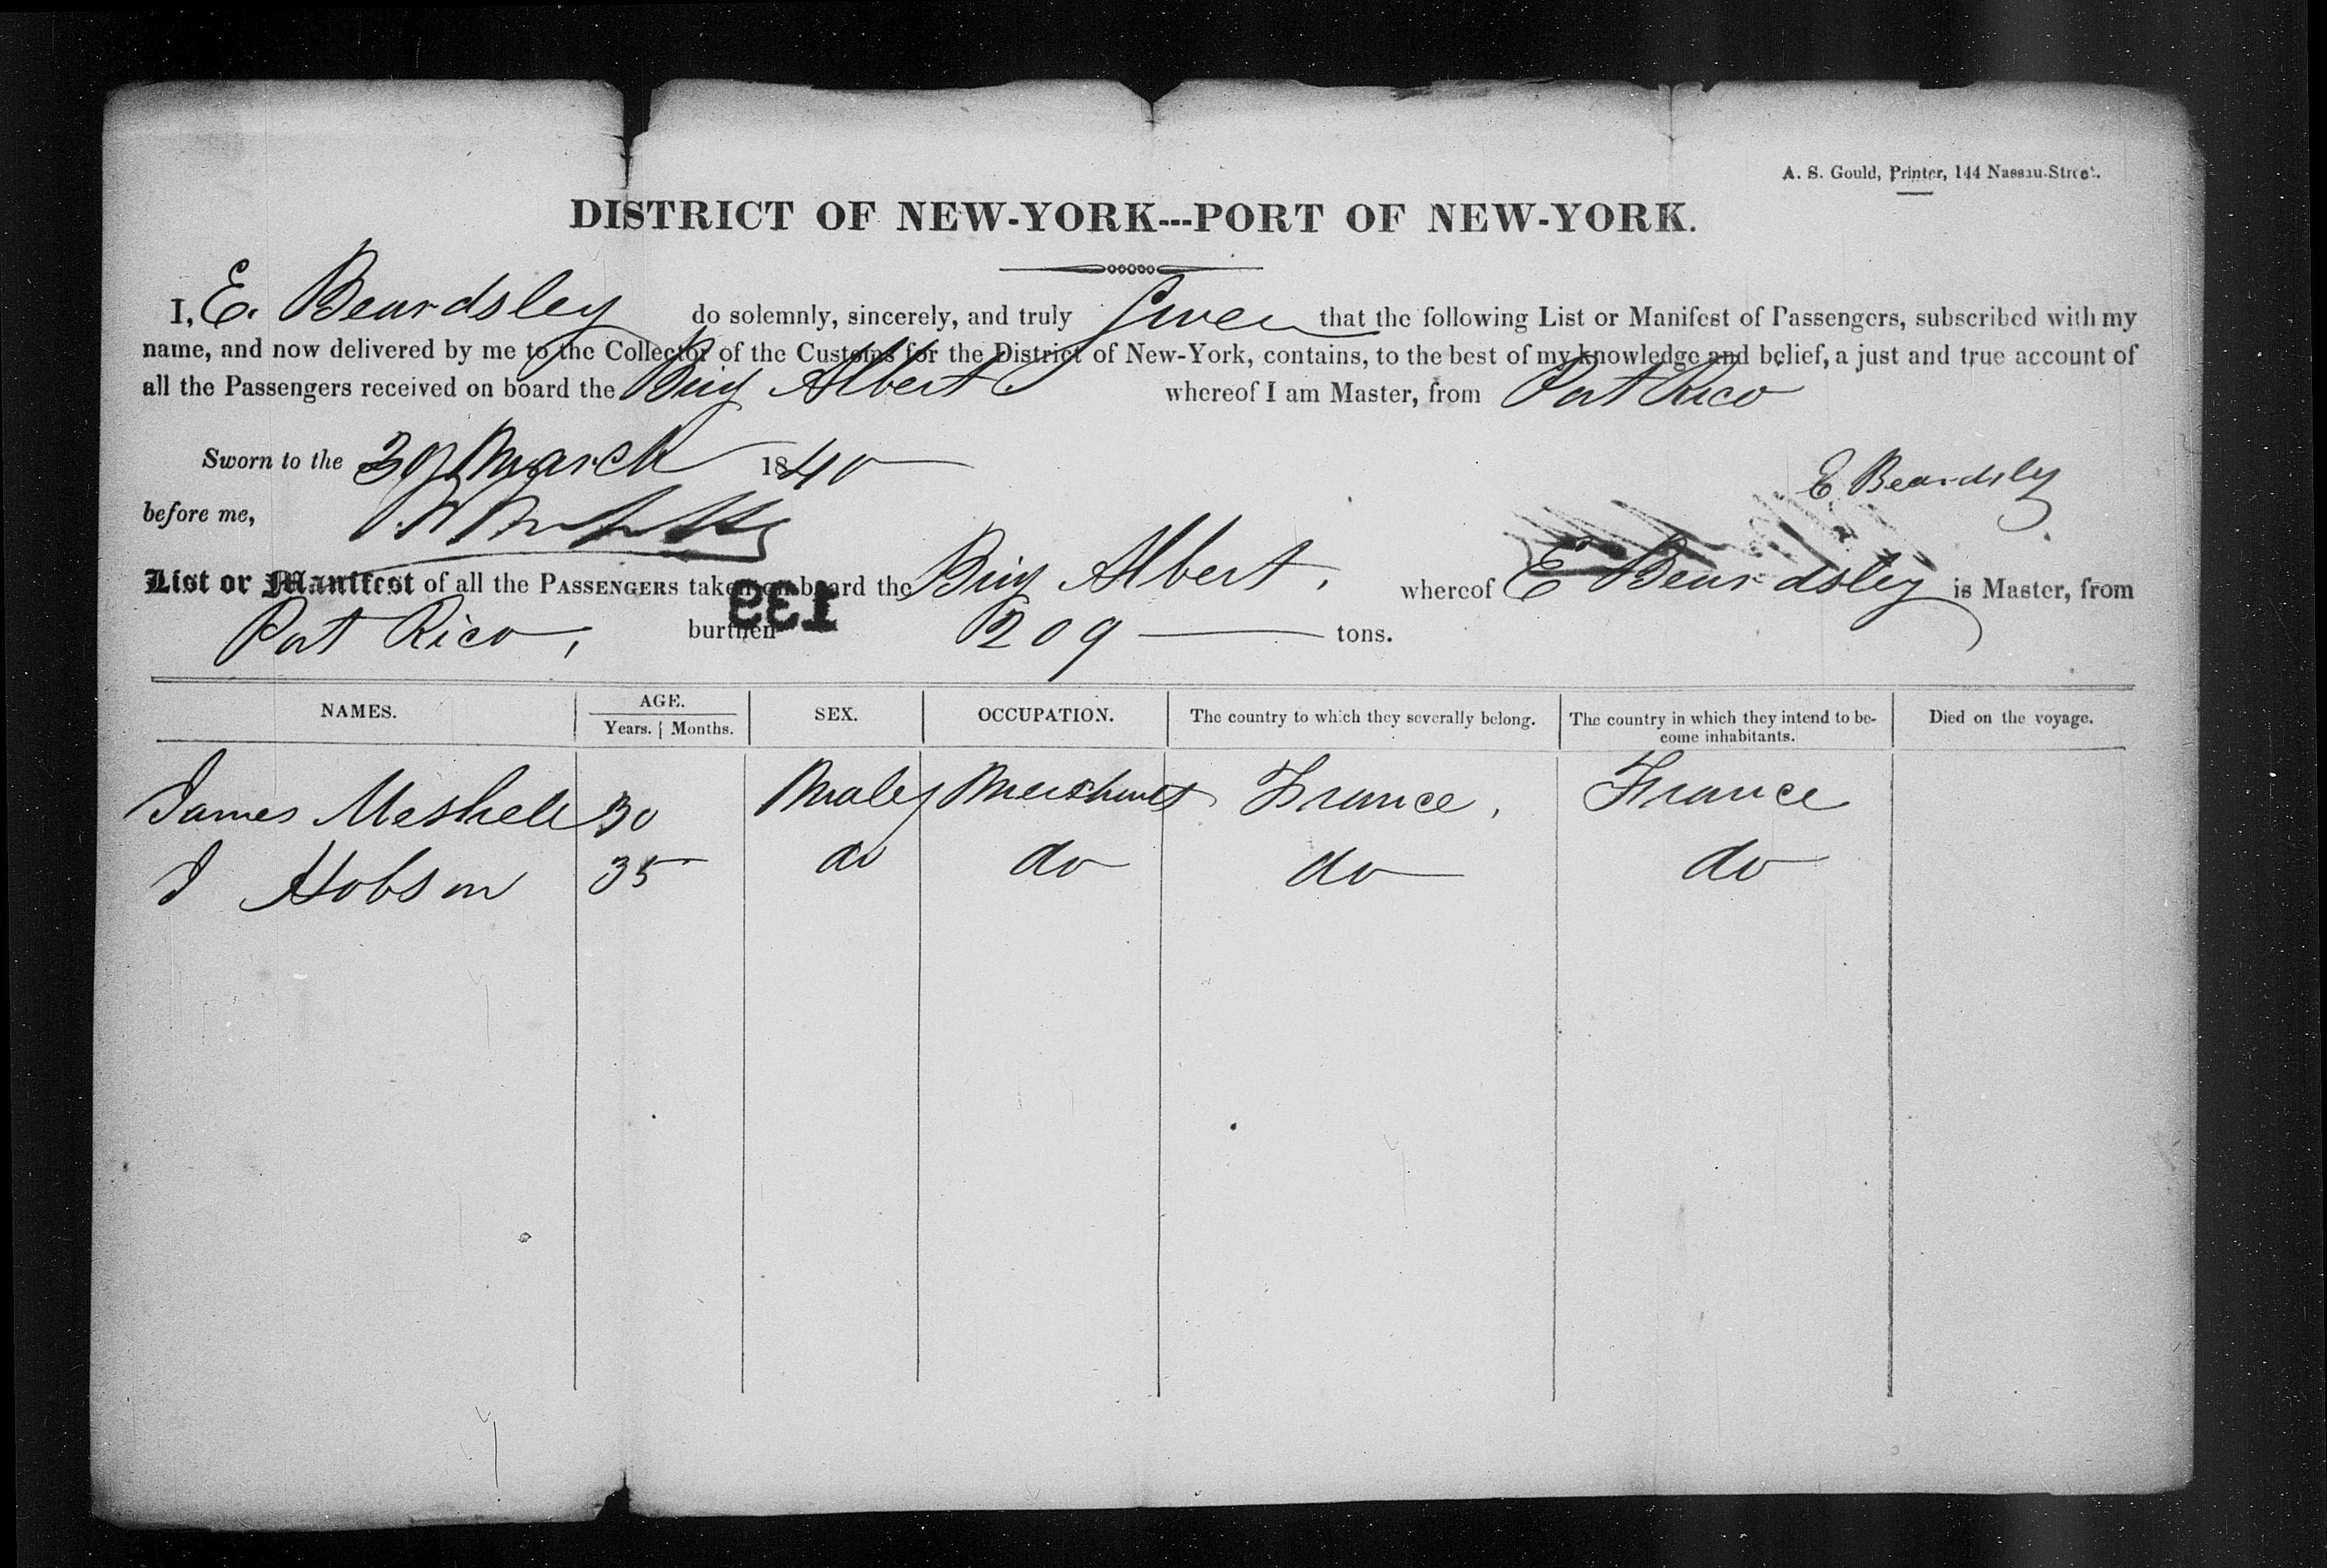 A. S. Gould, Printer, 144 Nassau-Street.
DISTRICT OF NEW-YORK---PORT OF NEW-YORK.
I, E. Beardsley do solemnly, sincerely, and truly Swear that the following List or Manifest of Passengers, subscribed with my
name, and now delivered by me to the Collector of the Customs for the District of New-York, contains, to the best of my knowledge and belief, a just and true account of
all the Passengers received on board the Brig Albert whereof I am Master, from Port Rico
Sworn to the 30 March 1840
E Beardsley
before me,
List or Manifest of all the PASSENGERS taken on board the Brig Albert, whereof E Beardsley is Master, from
133
Port Rico, burthen 209 tons.
NAMES. AGE. SEX. OCCUPATION. The country to which they severally belong. The country in which they intend to be- Died on the voyage.
Years. Months. come inhabitants.
James Meshell 30 Males Merchants France, France
J Hobson 35 do do do do